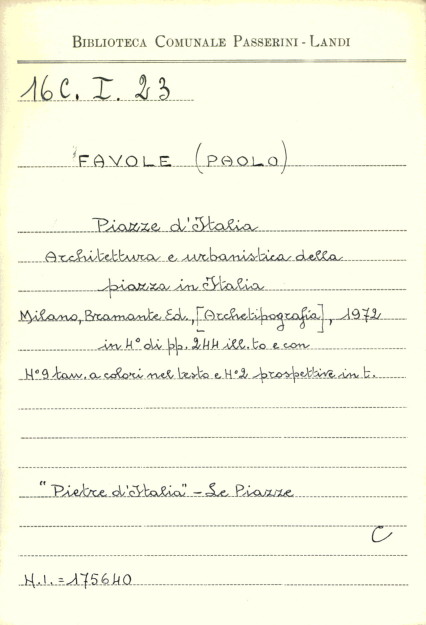 BIBLIOTECA COMUNALE PASSERINI - LANDI
16 C. I. 23
FAVOLE (PAOLO)
Piazze d'Italia
Architettura e urbanistica della
piazza in Italia
Milano, Bramante Ed., [Archetipografia], 1972
in 4° di pp. 244 ill.to e con
N°9 tav. a colori nel testo e N°2 prospettive in t.
"Pietre d'Italia" - Le Piazze
C
N.I. = 175640